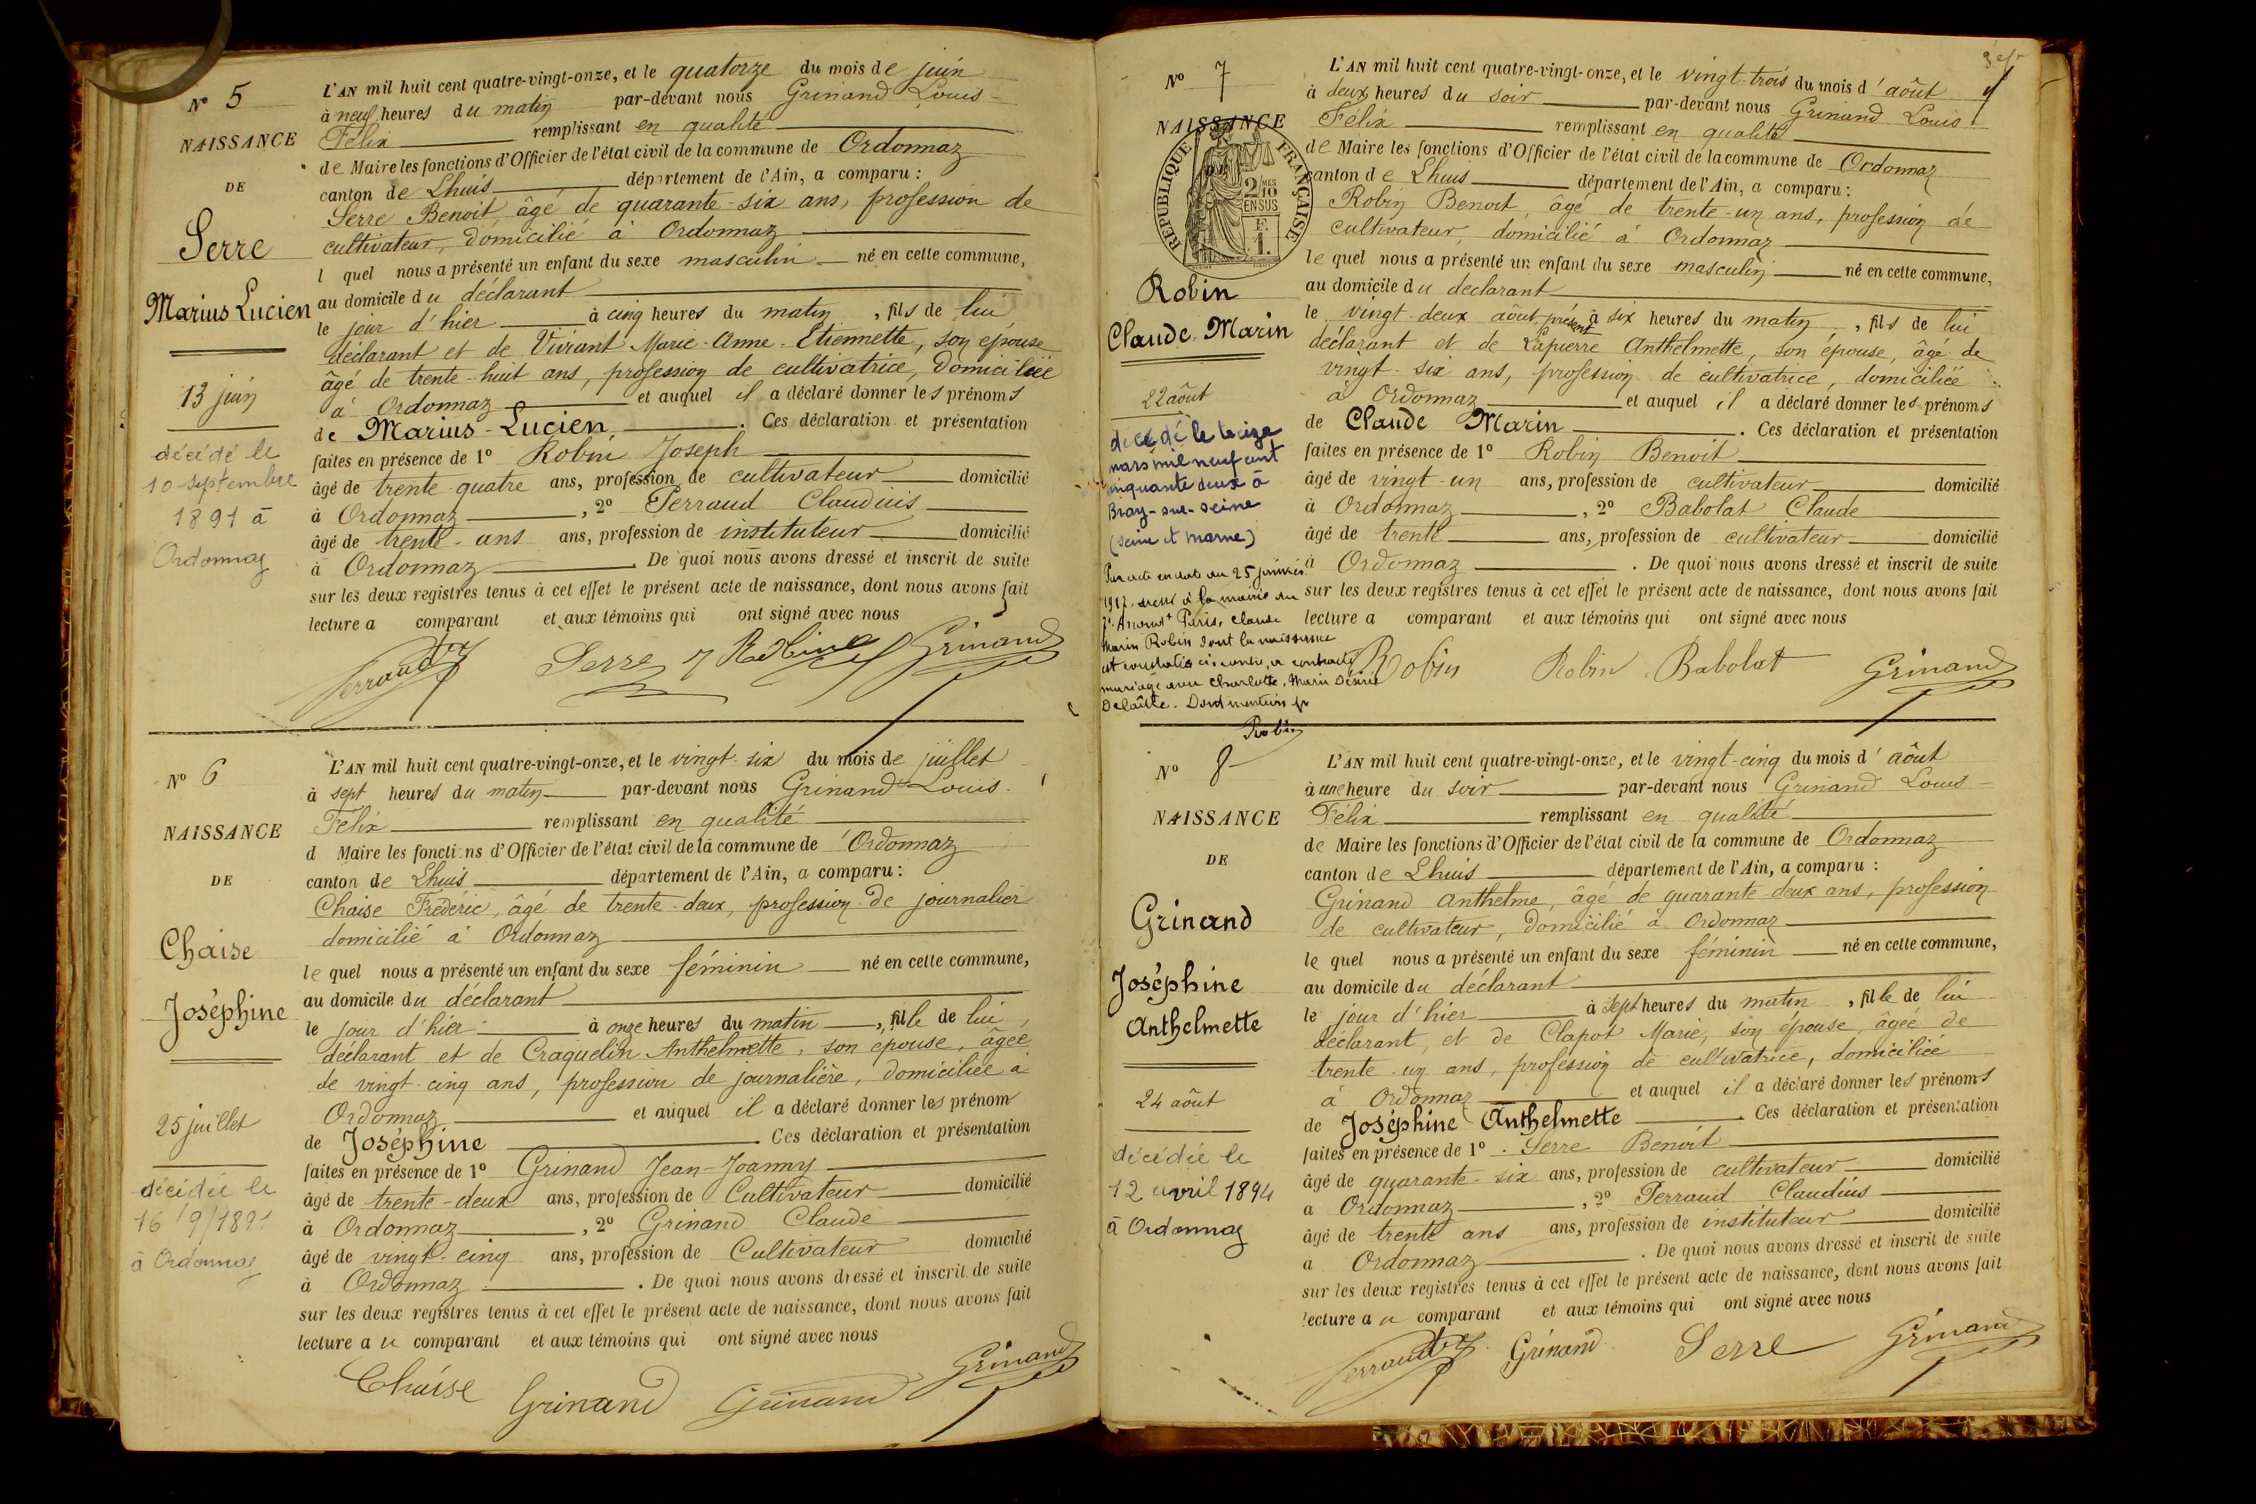 N° 5
NAISSANCE
DE
Serre
Marius Lucien
13 juin
décédé le
10 septembre
1891 à
Ordonnaz
L'AN mil huit cent quatre-vingt-onze, et le quatorze du mois de juin
à neuf heures du matin par-devant nous Grinand Louis-
Félix remplissant en qualité
de Maire les fonctions d'Officier de l'état civil de la commune de Ordonnaz
canton de Lhuis département de l'Ain, a comparu :
Serre Benoit, âgé de quarante-six ans, profession de
cultivateur, domicilié à Ordonnaz
l quel nous a présenté un enfant du sexe masculin né en cette commune,
au domicile du déclarant
le jour d'hier à cinq heures du matin, fils de lui
déclarant et de Vivrant Marie-Anne-Etiennette, son épouse
âgé de trente-huit ans, profession de cultivatrice, domiciliée
à Ordonnaz et auquel il a déclaré donner les prénoms
de Marius-Lucien. Ces déclaration et présentation
faites en présence de 1° Robin Joseph
âgé de trente-quatre ans, profession de cultivateur domicilié
à Ordonnaz, 2° Perraud Claudius
âgé de trente-ans ans, profession de instituteur domicilié
à Ordonnaz. De quoi nous avons dressé et inscrit de suite
sur les deux registres tenus à cet effet le présent acte de naissance, dont nous avons fait
lecture a comparant et aux témoins qui ont signé avec nous
Perraud Serre J Robin Grinand
N° 6
NAISSANCE
DE
Chaise
Joséphine
25 juillet
décédée le
16/9/1891
à Ordonnaz
L'AN mil huit cent quatre-vingt-onze, et le vingt-six du mois de juillet
à sept heures du matin par-devant nous Grinand Louis-
Félix remplissant en qualité
d Maire les fonctions d'Officier de l'état civil de la commune de Ordonnaz
canton de Lhuis département de l'Ain, a comparu :
Chaise Frédéric, âgé de trente-deux, profession de journalier
domicilié à Ordonnaz
le quel nous a présenté un enfant du sexe féminin né en cette commune,
au domicile du déclarant
le jour d'hier à onze heures du matin, fille de lui
déclarant et de Craquelin Anthelmette, son epouse, âgée
de vingt-cinq ans, profession de journalière, domiciliée à
Ordonnaz et auquel il a déclaré donner les prénom
de Joséphine. Ces déclaration et présentation
faites en présence de 1° Grinand Jean-Joanny
âgé de trente-deux ans, profession de Cultivateur domicilié
à Ordonnaz, 2° Grinand Claude
âgé de vingt-cinq ans, profession de Cultivateur domicilié
à Ordonnaz. De quoi nous avons dressé et inscrit de suite
sur les deux registres tenus à cet effet le présent acte de naissance, dont nous avons fait
lecture a u comparant et aux témoins qui ont signé avec nous
Chaise Grinand Grinand Grinand
N° 7
NAISSANCE
RÉPUBLIQUE FRANÇAISE
2/10 MES
EN SUS
F.
1.
Robin
Claude-Marin
22 août
décédé le treize
mars mil neuf cent
cinquante deux à
Bray-sur-Seine
(Seine et Marne)
Par acte en date du 25 janvier
1917, dressé à la mairie du
Arrondt Paris, Claude
Marin Robin dont la naissance
est constatée ci-contre, a contracté
mariage avec Charlotte, Marie Désirée
Delaître. Dont mention fr
Robin
L'AN mil huit cent quatre-vingt-onze, et le vingt-trois du mois d'août
à deux heures du soir par-devant nous Grinand Louis-
Félix remplissant en qualité
de Maire les fonctions d'Officier de l'état civil de la commune de Ordonnaz
canton de Lhuis département de l'Ain, a comparu :
Robin Benoit, âgé de trente-un ans, profession de
cultivateur, domicilié à Ordonnaz
le quel nous a présenté un enfant du sexe masculin né en cette commune,
au domicile du declarant
le vingt-deux août présent à six heures du matin, fils de lui
déclarant et de Lapierre Anthelmette, son épouse, âgé de
vingt-six ans, profession de cultivatrice, domiciliée
à Ordonnaz et auquel il a déclaré donner les prénoms
de Claude Marin. Ces déclaration et présentation
faites en présence de 1° Robin Benoit
âgé de vingt-un ans, profession de cultivateur domicilié
à Ordonnaz, 2° Babolat Claude
âgé de trente ans, profession de cultivateur domicilié
à Ordonnaz. De quoi nous avons dressé et inscrit de suite
sur les deux registres tenus à cet effet le présent acte de naissance, dont nous avons fait
lecture a comparant et aux témoins qui ont signé avec nous
Robin Robin Babolat Grinand
N° 8
NAISSANCE
DE
Grinand
Joséphine
Anthelmette
24 août
décédée le
12 avril 1894
à Ordonnaz
L'AN mil huit cent quatre-vingt-onze, et le vingt-cinq du mois d'août
à une heure du soir par-devant nous Grinand Louis-
Félix remplissant en qualité
de Maire les fonctions d'Officier de l'état civil de la commune de Ordonnaz
canton de Lhuis département de l'Ain, a comparu :
Grinand Anthelme, âgé de quarante-deux ans, profession
de cultivateur, domicilié à Ordonnaz
le quel nous a présenté un enfant du sexe féminin né en cette commune,
au domicile du déclarant
le jour d'hier à sept heures du matin, fille de lui
déclarant, et de Clapot Marie, son épouse, âgée de
trente-un ans, profession de cultivatrice, domiciliée
à Ordonnaz et auquel il a déclaré donner les prénoms
de Joséphine Anthelmette. Ces déclaration et présentation
faites en présence de 1° Serre Benoit
âgé de quarante-six ans, profession de cultivateur domicilié
a Ordonnaz, 2° Perraud Claudius
âgé de trente ans ans, profession de instituteur domicilié
a Ordonnaz. De quoi nous avons dressé et inscrit de suite
sur les deux registres tenus à cet effet le présent acte de naissance, dont nous avons fait
lecture a u comparant et aux témoins qui ont signé avec nous
Perraud Grinand Serre Grinand